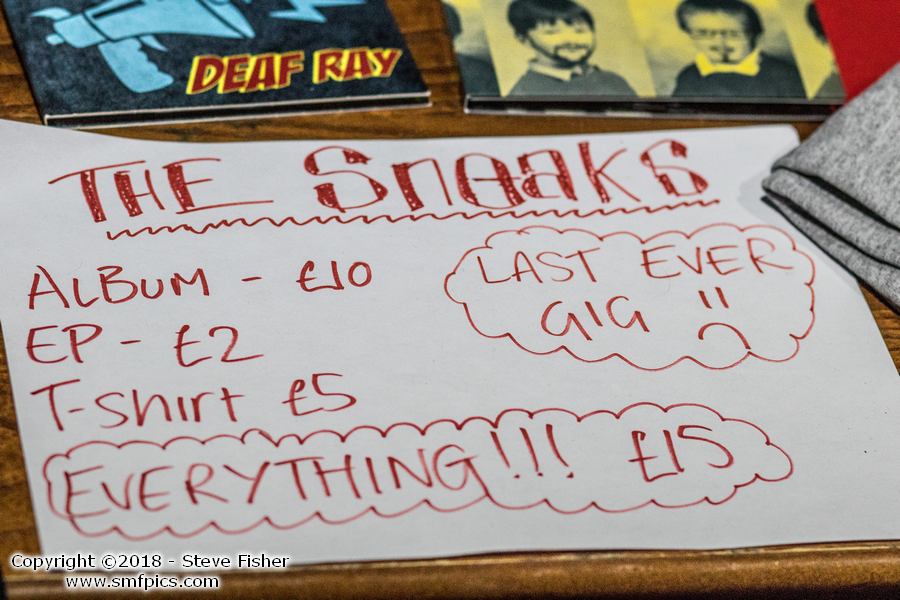 DEAF RAY
THE SneaKS
ALBUM - £10
EP - £2
T-Shirt £5
EVERYTHING!!! £15
LAST EVER
GIG
Copyright ©2018 - Steve Fisher
www.smfpics.com